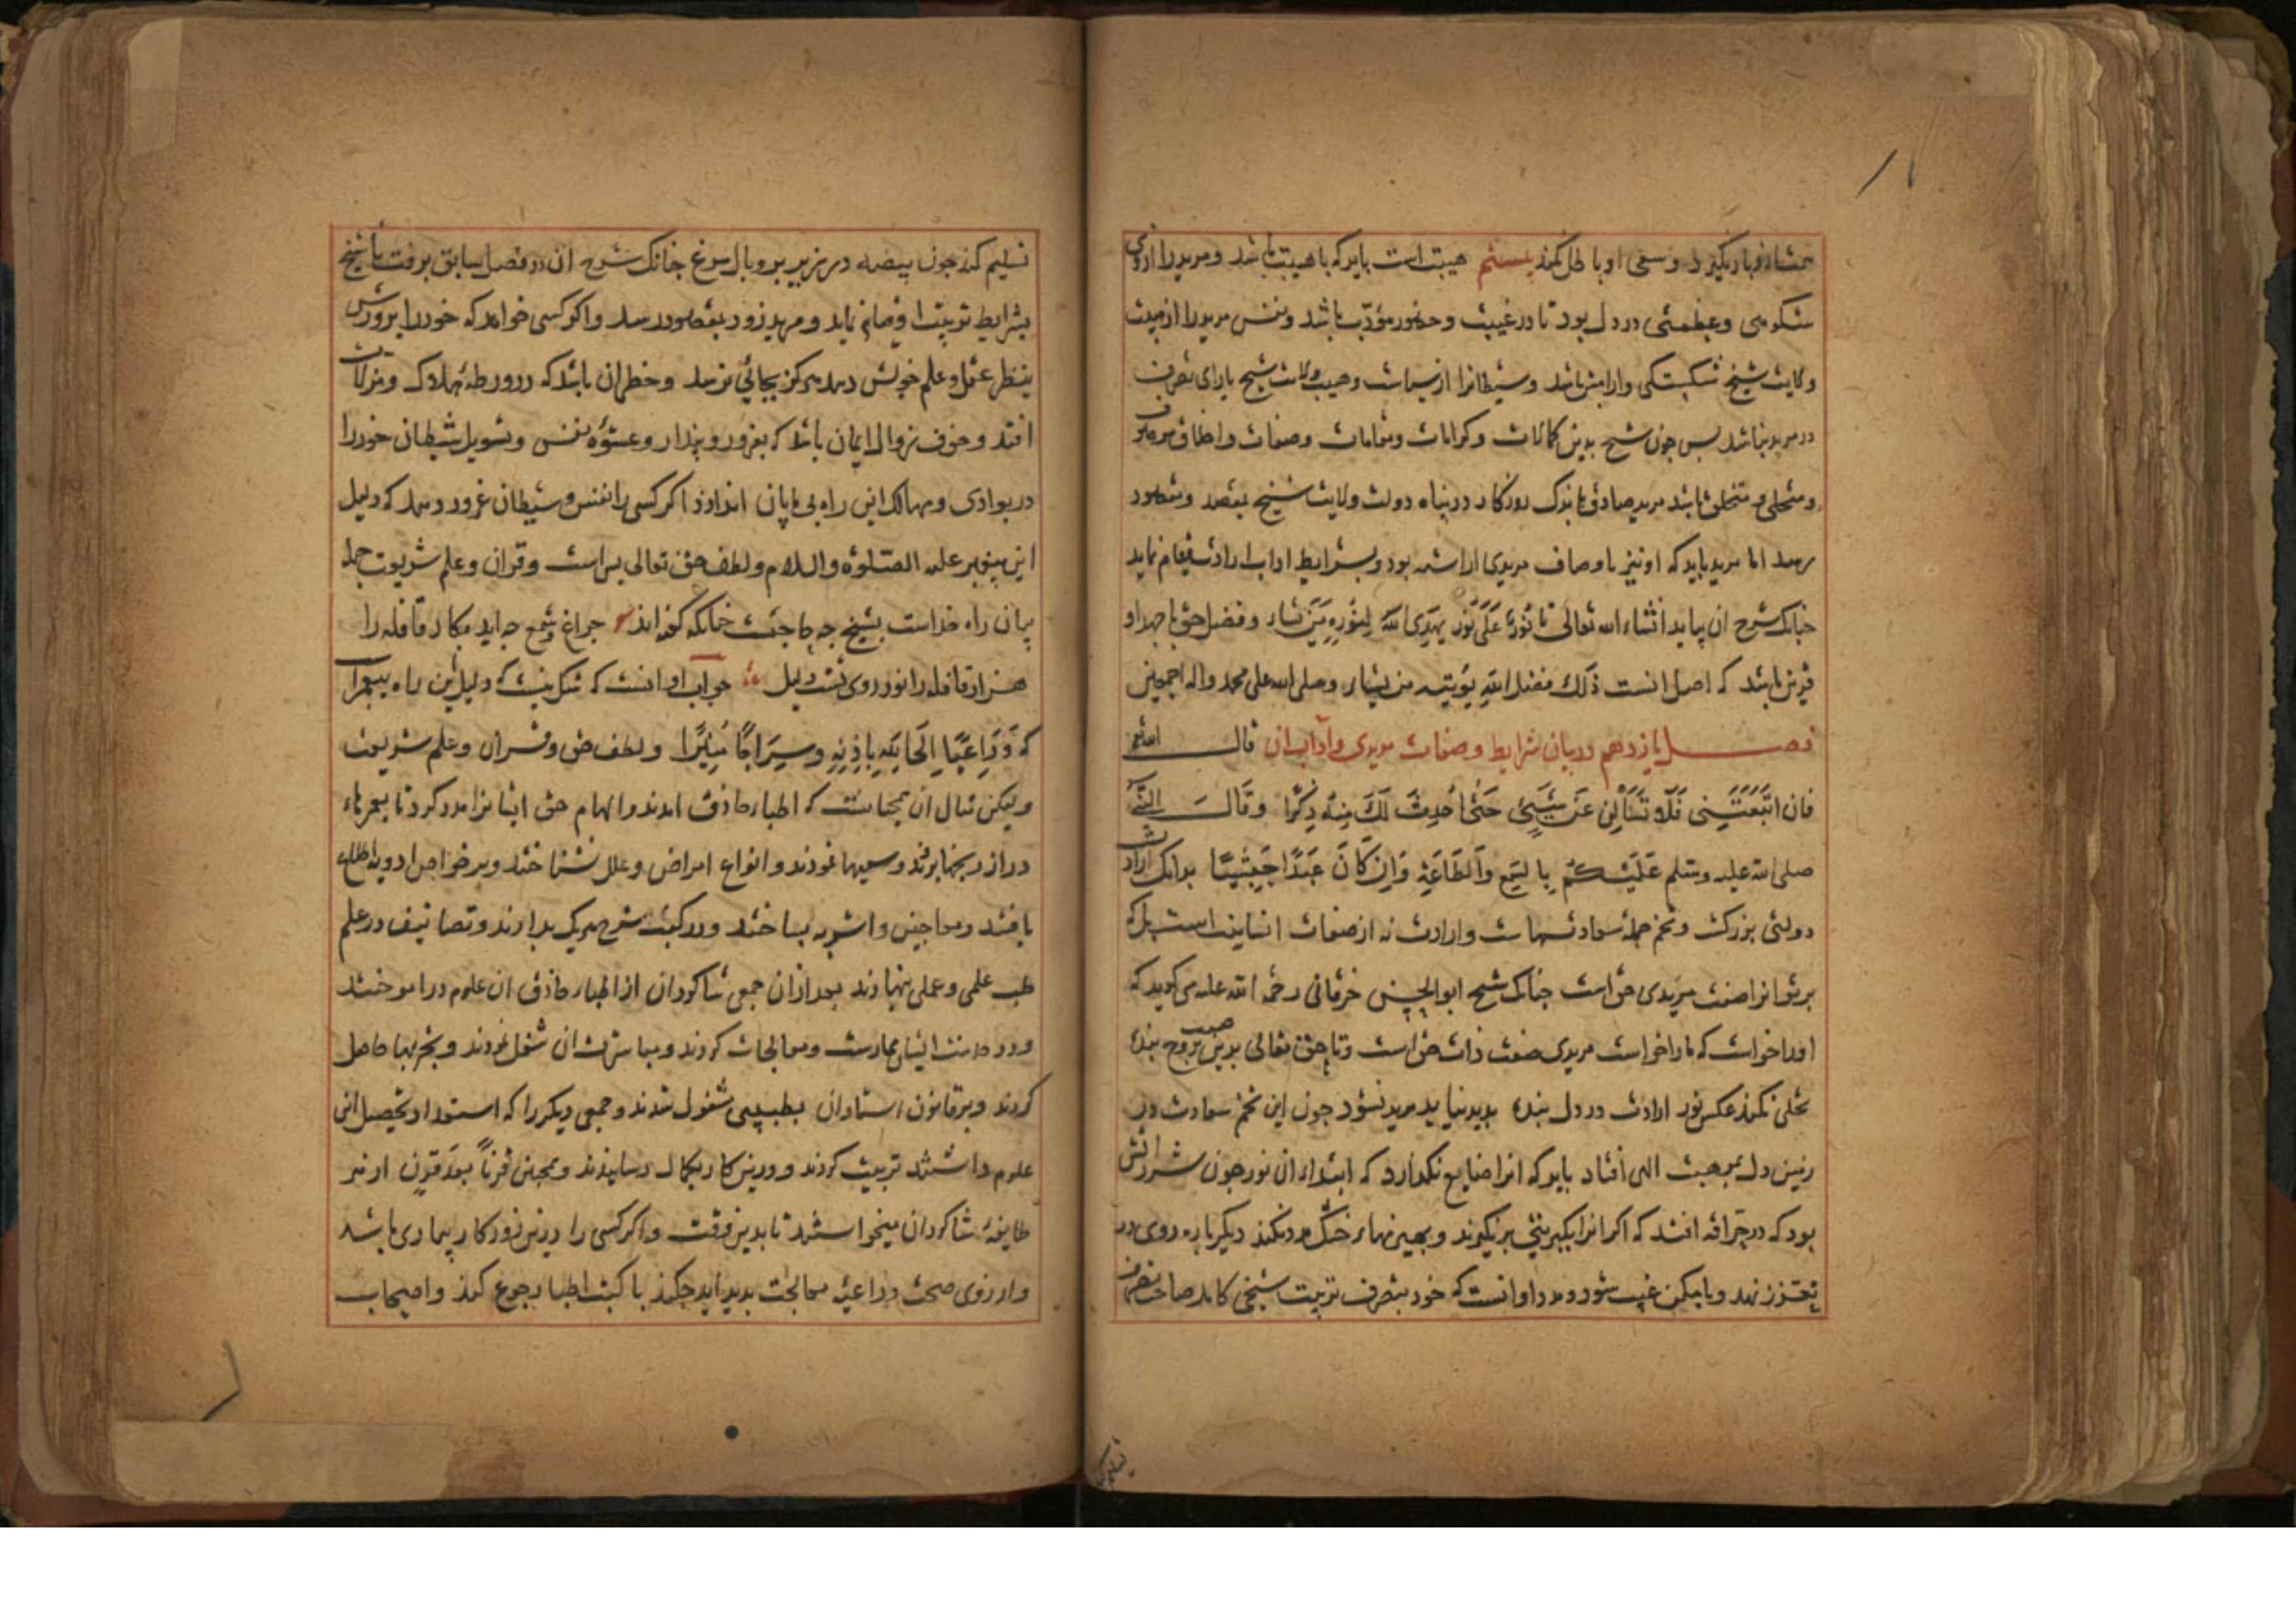 نستاند و باز نگیرد و سعی او باطل نکند بیستم هیبت است باید که با هیبت باشد و مرید را ازوی
شکوهی و عظمتی در دل بود تا در غیبت و حضور مؤدب باشد و نفس مرید را از هیبت
ولایت شیخ شکستگی و آرامش باشد و شیطانرا از سیاست و هیبت ولایت شیخ یارای تصرف
در مرید نباشد بس جون شیخ بدین کمالات و کرامات و مقامات و صفات و اخلاق موصوف
و متحلی و متخلق باشد مرید صادق باندک روزکار در پناه دولت ولایت شیخ بمقصد و مقصود
رسد اما مرید باید که او نیز باوصاف مریدی آراسته بود و بشرایط آداب ارادت قیام نماید
جنانک شرح آن بیاید انشاء الله تعالی تا نور علی نور یهدی الله لنوره من یشاء و فضل حق با جهد او
قرین باشد که اصل آنست ذلک فضل الله یؤتیه من یشاء و صلی الله علی محمد و اله اجمعین
فصل یازدهم در بیان شرایط و صفات مریدی و آداب آن قال الله تعالی
فان اتبعتنی فلا تسألنی عن شیئ حتی احدث لک منه ذکرا و قال النبی
صلی الله علیه و سلم علیکم بالسمع و الطاعة و ان کان عبدا حبشیا بدانک ارادت
دولتی بزرکست و تخم جملهٔ سعادتهاست و ارادت نه از صفات انسانیت است بل که
برتو انوار صفت مریدی حق است جنانک شیخ ابوالحسن خرقانی رحمة الله علیه می کوید که
او را خواست که ما را خواست مریدی صفت ذات حق است و تا حق تعالی بدین صفت بر روح بنده
تجلی نکند عکس نور ارادت در دل بنده بدید نیاید مرید نشود جون این تخم سعادت در
زمین دل بموهبت الهی افتاد باید که آنرا ضایع نکذارد که ابتداء آن نور جون شرر آتش
بود که در حراقه افتد که اکر آنرا بکبریتی برنکیرند و بهیزمهاء خشک مدد نکند دیکر باره روی در
تعزز نهد و با مکمن غیب شود و مدد او آنست که خود بتصرف تربیت شیخی کامل صاحب تصرف
تسلیم کند
تسلیم کند جون بیضه در زیر پر و بال مرغ جنانک شرح آن در فصل سابق برفت تا شیخ
بشرایط تربیت او قیام نماید و مرید زود بمقصود رسد و اکر کسی خواهد که خود را پرورش
بنظر عقل و علم خویش دهد هرکز بجائی نرسد و خطر آن باشد که در ورطهٔ هلاک و مزلات
افتد و خوف زوال ایمان باشد که بغرور و پندار و عشوهٔ نفس و تسویل شیطان خود را
در بوادی و مهالک این راه بی پایان اندازد اکر کسی را نفس و شیطان غرور دهد که دلیل
این پیغمبر علیه الصلوة والسلام و لطف حق تعالی بس است و قرآن و علم شریعت جمله
بیان راه خداست بشیخ جه حاجت جنانکه کفته اند جراغ و شمع جه آید بکار قافله را
هزار قافله را نور روی تست دلیل جواب او آنست که شک نیست که دلیل این راه پیغمبر است
که و داعیا الی الله باذنه و سراجا منیرا و لطف حق و قرآن و علم شریعت
ولیکن مثال آن همجنانست که اطباء حاذق آمدند و الهام حق ایشانرا مدد کرد تا بعمرهاء
دراز رنجها بردند و سعیها نمودند و انواع امراض و علل بشناختند و بر خواص ادویه اطلاع
یافتند و معاجین و اشربه بساختند و در کتب شرح هریک بدادند و تصانیف در علم
طب علمی و عملی بنهادند بعد از آن جمعی شاکردان از اطباء حاذق آن علوم در آموختند
و در خدمت ایشان ممارست و معالجات کردند و مباشرت آن شغل نمودند و تجربها حاصل
کردند و بر قانون استادان بطبیبی مشغول شدند و جمعی دیکر را که استعداد تحصیل این
علوم داشتند تربیت کردند و در این کار بکمال رسانیدند و همجنین قرنا بعد قرن از هر
طایفه شاکردان میخواستند تا بدین وقت و اکر کسی را درین روزکار بیماری باشد
و آرزوی صحت و داعیهٔ معالجت بدید آید جکند با کتب اطبا رجوع کند و اصحاب